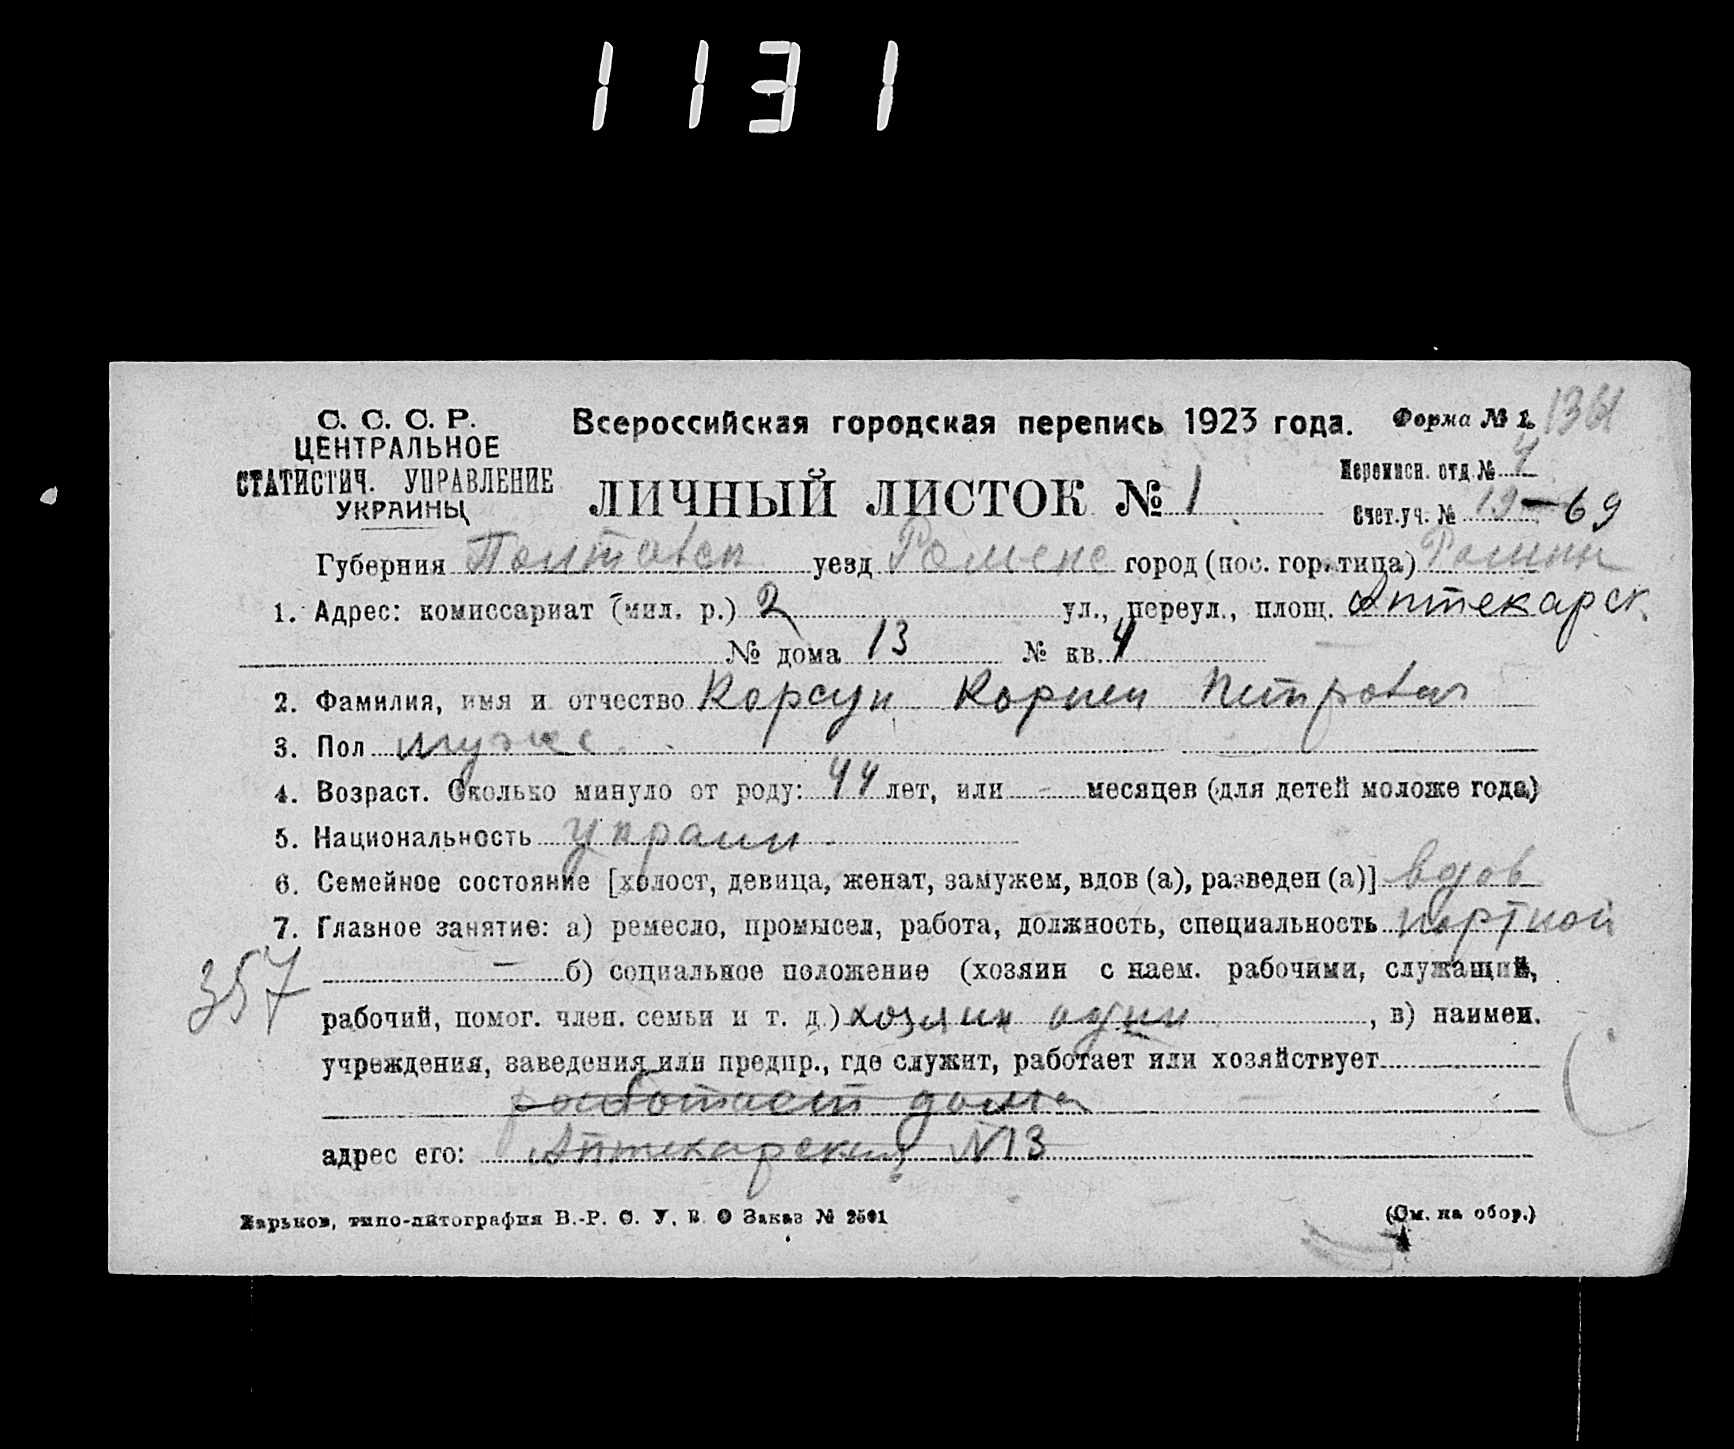 1131
С. С. С. Р.
ЦЕНТРАЛЬНОЕ
СТАТИСТИЧ. УПРАВЛЕНИЕ
УКРАИНЫ
Всероссийская городская перепись 1923 года.
Форма № 1.
ЛИЧНЫЙ ЛИСТОК № 1
Переписн. отд. № 4
Счет. уч. № 19-69
Губерния Полтавск уезд Роменс город (пос. гор. типа) Ромны
1. Адрес: комиссариат (мил. р.) 2 ул., переул., площ. Аптекарск.
№ дома 13 № кв. 4
2. Фамилия, имя и отчество Корсун Корней Петрович
3. Пол мужс.
4. Возраст. Сколько минуло от роду: 44 лет, или - месяцев (для детей моложе года)
5. Национальность украин
6. Семейное состояние [холост, девица, женат, замужем, вдов (а), разведен (а)] вдов
7. Главное занятие: а) ремесло, промысел, работа, должность, специальность портной
357
— б) социальное положение (хозяин с наем. рабочими, служащий,
рабочий, помог. член. семьи и т. д.) хозяин один, в) наимен.
учреждения, заведения или предпр., где служит, работает или хозяйствует
работает дома
адрес его: Аптекарская N13
Харьков, типо-литография В.-Р. С. У. В. О Заказ № 2591
(См. на обор.)